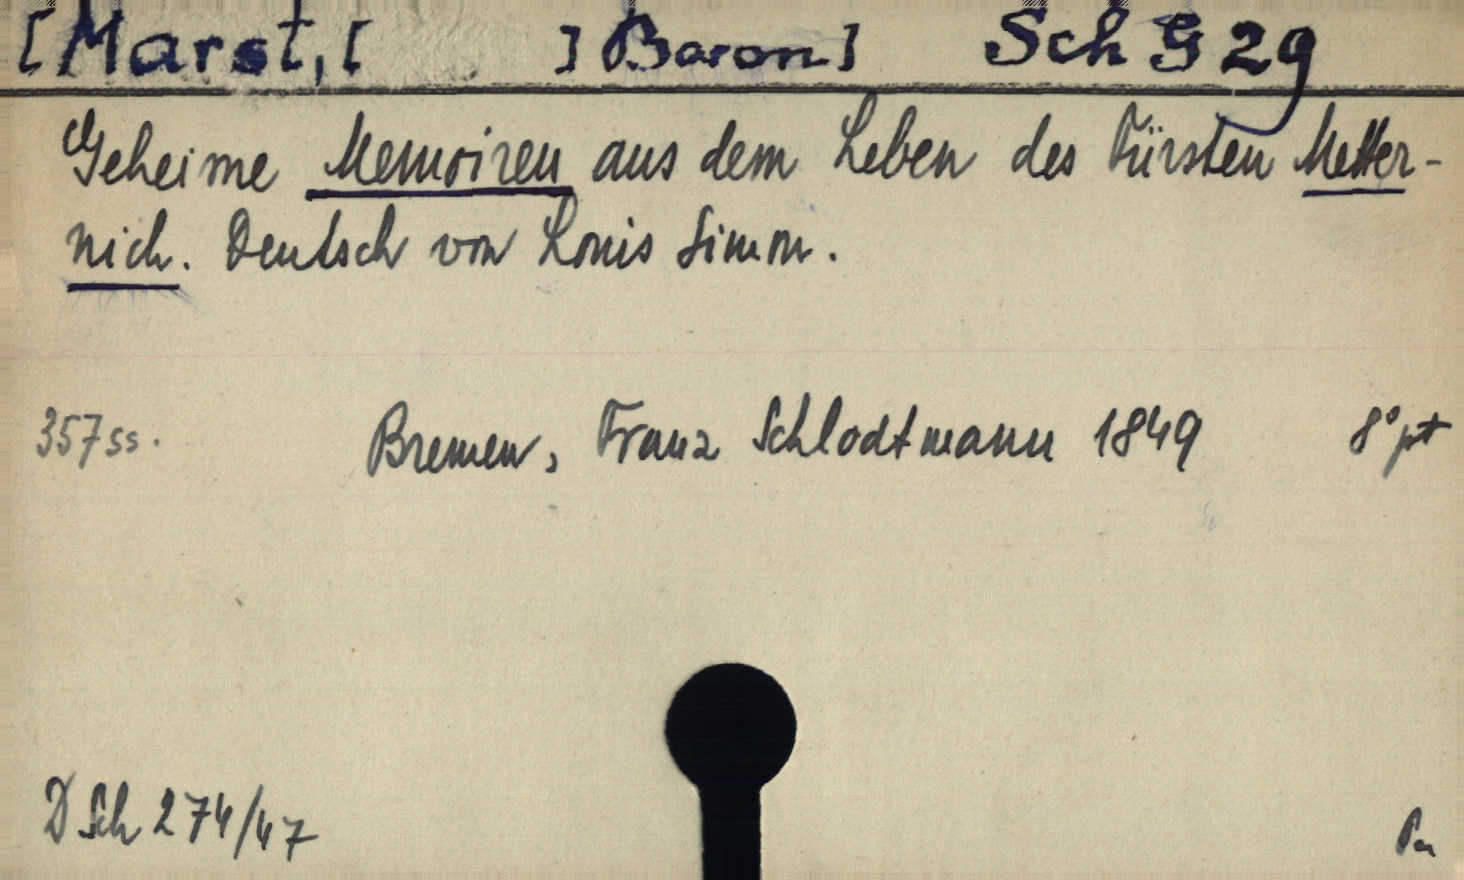 [Marst, [ ] Baron] Sch G 29
Geheime Memoiren aus dem Leben des Fürsten Metter-
nich. Deutsch von Louis Simon.
357 ss. Bremen, Franz Schlodtmann 1849 8° pt
D Sch 274/47